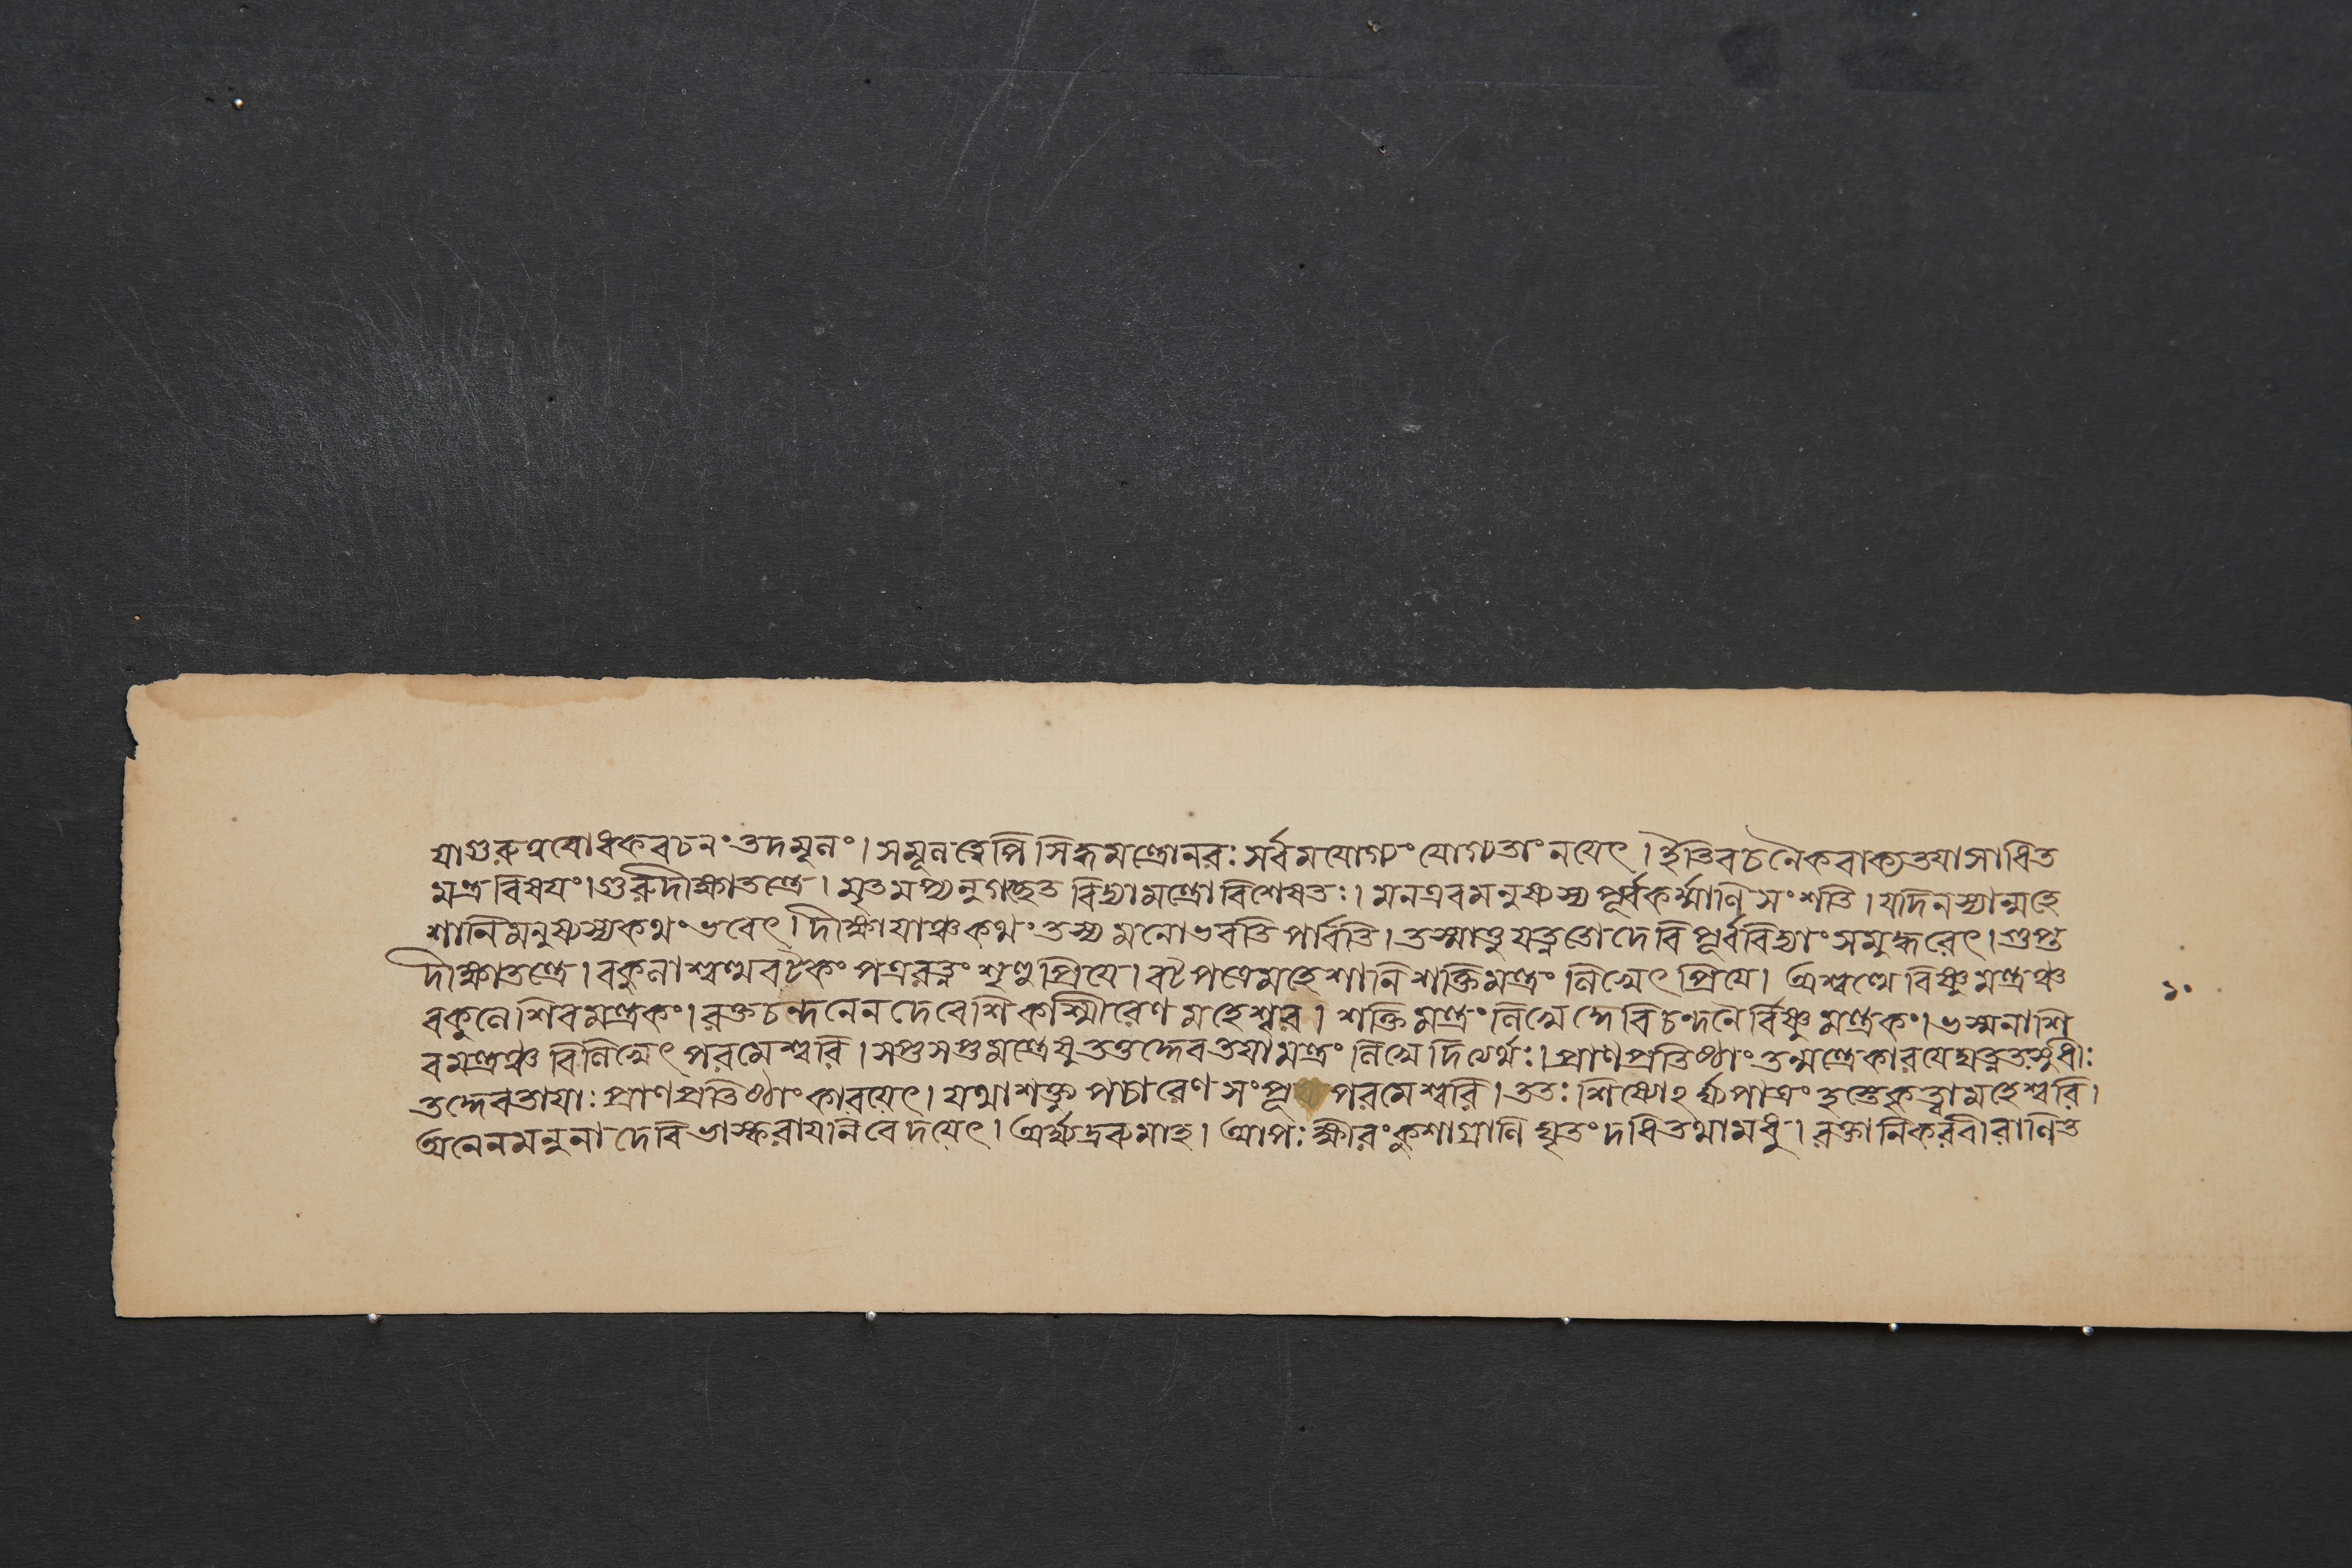 যাগুরুপ্রবোধকবচনং তদমূলং। সমূলত্বেপি সিদ্ধমন্ত্রোনরঃ সর্বমযোগ্যং যোগ্যতাং নযেৎ। ইতিবচনৈকবাক্যতযাসাধিত
মন্ত্রবিষযং। গুরুদীক্ষাতন্ত্রে। মৃতমপ্যনুগচ্ছেত বিদ্যামন্ত্রো বিশেষতঃ। মনএবমনুষ্যস্য পূর্বকর্ম্মাণি সংশতি। যদিনস্যান্মহে
শানিমনুষ্যস্যকথং ভবেৎ। দীক্ষাযাঞ্চকথং তস্য মনোভবতি পার্বতি। তস্মাত্তু যত্নতো দেবি পূর্ববিদ্যাং সমুদ্ধরেৎ। গুপ্ত
দীক্ষাতন্ত্রে। বকুলাশ্বত্থবটৈকং পত্ররত্নং শৃণু প্রিযে। বটপত্রেমহেশানি শক্তিমন্ত্রং লিখেৎ প্রিযে। অশ্বত্থে বিষ্ণুমন্ত্রঞ্চ
বকুলে শিবমন্ত্রকং। রক্তচন্দনেন দেবেশি কাশ্মীরেণ মহেশ্বরি। শক্তিমন্ত্রং লিখেদ্দেবি চন্দনৈর্বিষ্ণুমন্ত্রকং। ভস্মনাশি
বমন্ত্রঞ্চ বিলিখেৎ পরমেশ্বরি। সপ্তসপ্তমন্ত্রেষু তত্তদ্দেবতযামন্ত্রং লিখেদিত্যর্থঃ। প্রাণপ্রতিষ্ঠাং তন্মন্ত্রেকারযেদ্যত্নতঃসুধীঃ
তদ্দেবতাযাঃ প্রাণপ্রতিষ্ঠাং কারযেৎ। যথাশক্ত্যুপচারেণ সংপূজ্য পরমেশ্বরি। ততঃ শিষ্যোঽর্ঘ্যপাত্রং হস্তেকৃত্বামহেশ্বরি।
অনেনমনুনা দেবি ভাস্করাযনিবেদযেৎ। অর্ঘ্যদ্রব্যমাহ। আপঃ ক্ষীরং কুশাগ্রাণি ঘৃতং দধিতথামধু। রক্তানিকরবীরাণিত
১০